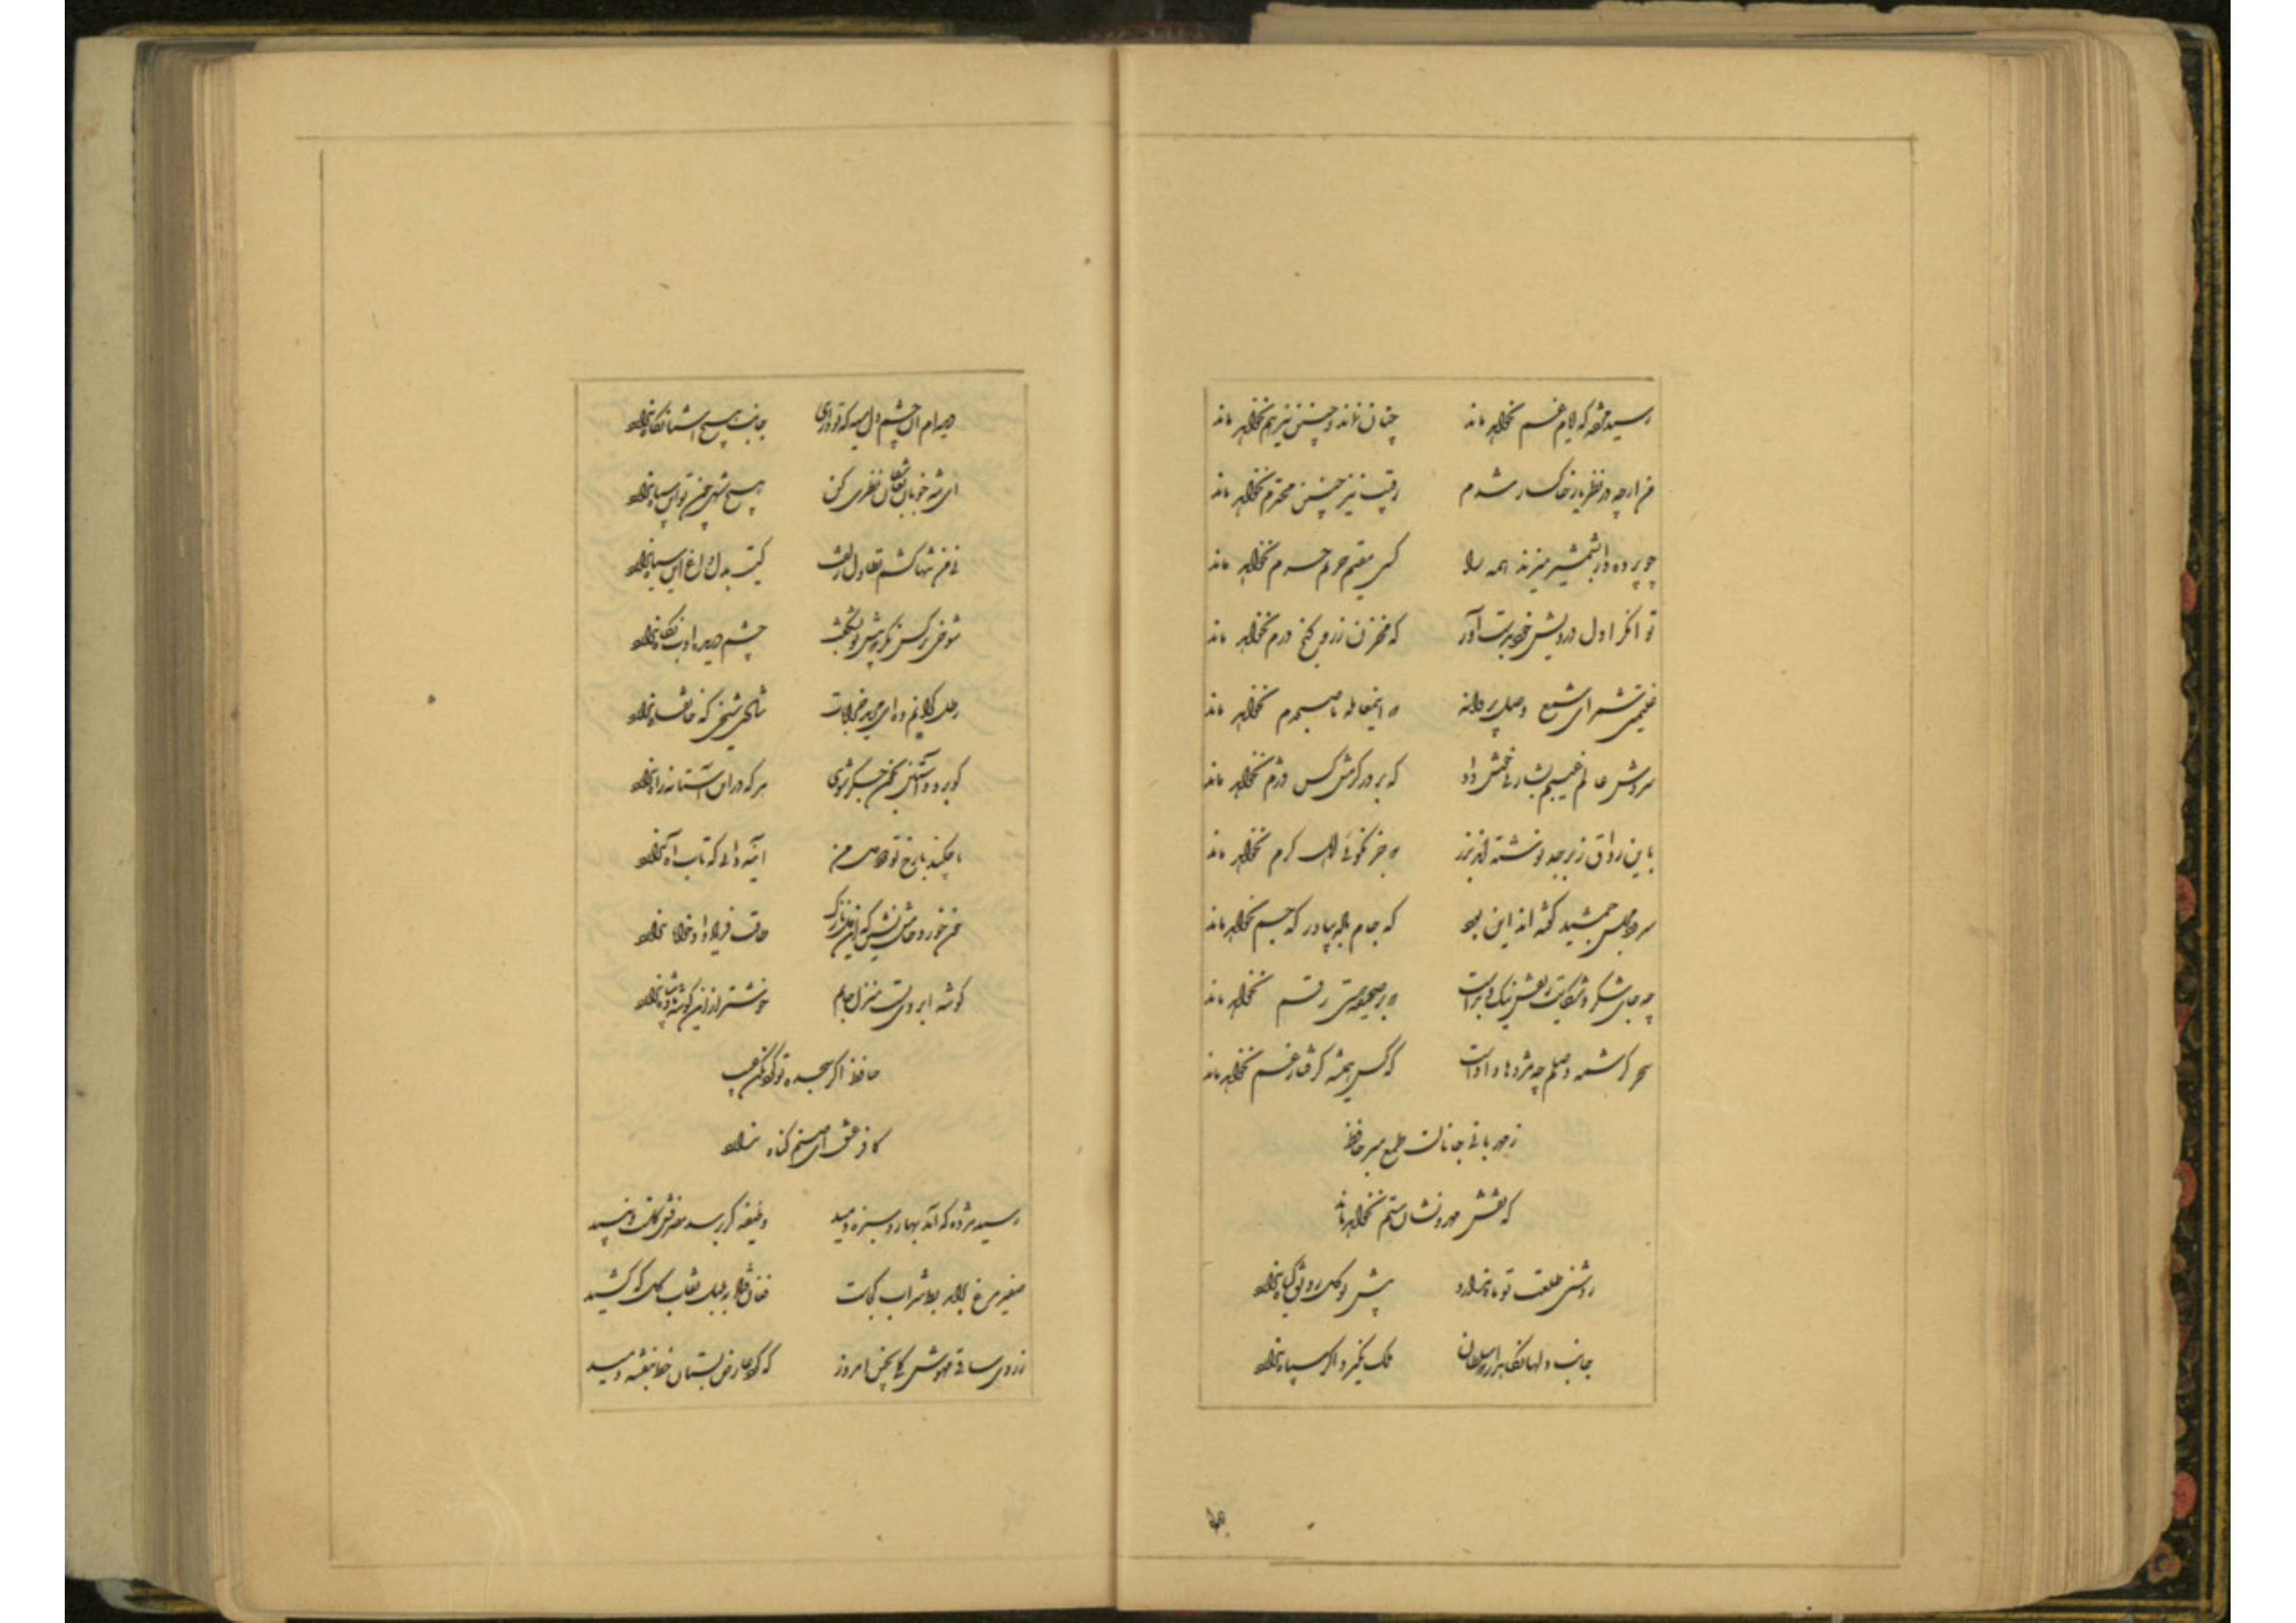 رسید مژده که ایام غم نخواهد ماند چنان نماند و چنین نیز هم نخواهد ماند
من ارچه در نظر یار خاکسار شدم رقیب نیز چنین محترم نخواهد ماند
چو پرده دار بشمشیر میزند همه را کسی مقیم حریم حرم نخواهد ماند
توانگرا دل درویش خود بدست آور که مخزن زر و گنج درم نخواهد ماند
غنیمتی شمر ای شمع وصل پروانه که اینمعامله تا صبحدم نخواهد ماند
سروش عالم غیبم بشارتی خوش داد که بر در کرمش کس دژم نخواهد ماند
باین رواق زبرجد نوشته اند بزر که جز نکوئی اهل کرم نخواهد ماند
سرود مجلس جمشید گفته اند این بود که جام باده بیاور که جم نخواهد ماند
چه جای شکر و شکایت ز نقش نیک و بد است که بر صحیفه هستی رقم نخواهد ماند
سحر کرشمه وصلم چه مژدها داد است که کس همیشه گرفتار غم نخواهد ماند
ز مهربانی جانان طمع مبر حافظ
که نقش مهر و نشان ستم نخواهد ماند
روشنی طلعت تو ماه ندارد پیش تو گل رونق گیاه ندارد
جانب دلها نگاهدار ای سلطان ملک نگیرد اگر سپاه ندارد
دیده ام آن چشم دل سیه که تو داری جانب هیچ آشنا نگاه ندارد
ای شه خوبان بعاشقان نظری کن هیچ شهی چون تو این سپاه ندارد
نی من تنها کشم تطاول زلفت کیست بدل داغ این سیاه ندارد
شوخی نرگس نگر که پیش تو بشکفت چشم دریده ادب نگاه ندارد
رطل گرانم ده ای مرید خرابات شادی شیخی که خانقاه ندارد
گو برو و آستین بخون جگر شوی هر که در این آستانه راه ندارد
تا چکند با رخ تو دود دل من آینه دانی که تاب آه ندارد
خون خور و خامش نشین که آن دل نازک طاقت فریاد دادخواه ندارد
گوشه ابروی تست منزل جانم خوشتر از این گوشه پادشاه ندارد
حافظ اگر سجده تو کرد مکن عیب
کافر عشق ای صنم گناه ندارد
رسید مژده که آمد بهار و سبزه دمید وظیفه گر برسد مصرفش گلست و نبید
صفیر مرغ برآمد بط شراب کجاست فغان فتاد ببلبل نقاب گل که کشید
ز روی ساقی مهوش گلی بچین امروز که گرد عارض بستان خط بنفشه دمید